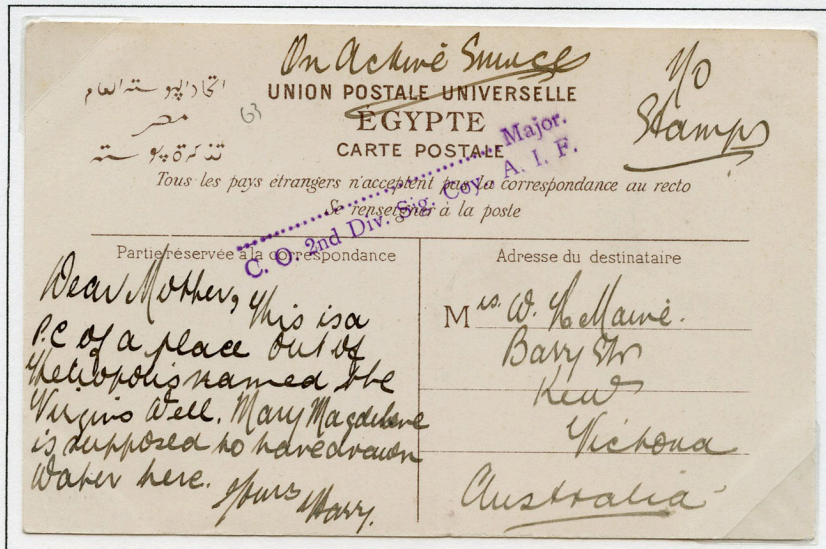 On Active Service
N/O
Stamps
اتحاد البوسته العام
مصر
تذكرة بوسته
63
UNION POSTALE UNIVERSELLE
ÉGYPTE
CARTE POSTALE
Tous les pays étrangers n'acceptent pas la correspondance au recto
Se renseigner à la poste
Major.
C. O. 2nd Div. Sig. Coy., A. I. F.
Partie réservée à la correspondance
Dear Mother, This is a
P.C of a place out of
Heliopolis named the
Virgins Well. Mary Magdelene
is supposed to have drawn
Water here.
Yours Harry.
Adresse du destinataire
Mrs. W.
Barry Str
Kew
Victoria
Australia